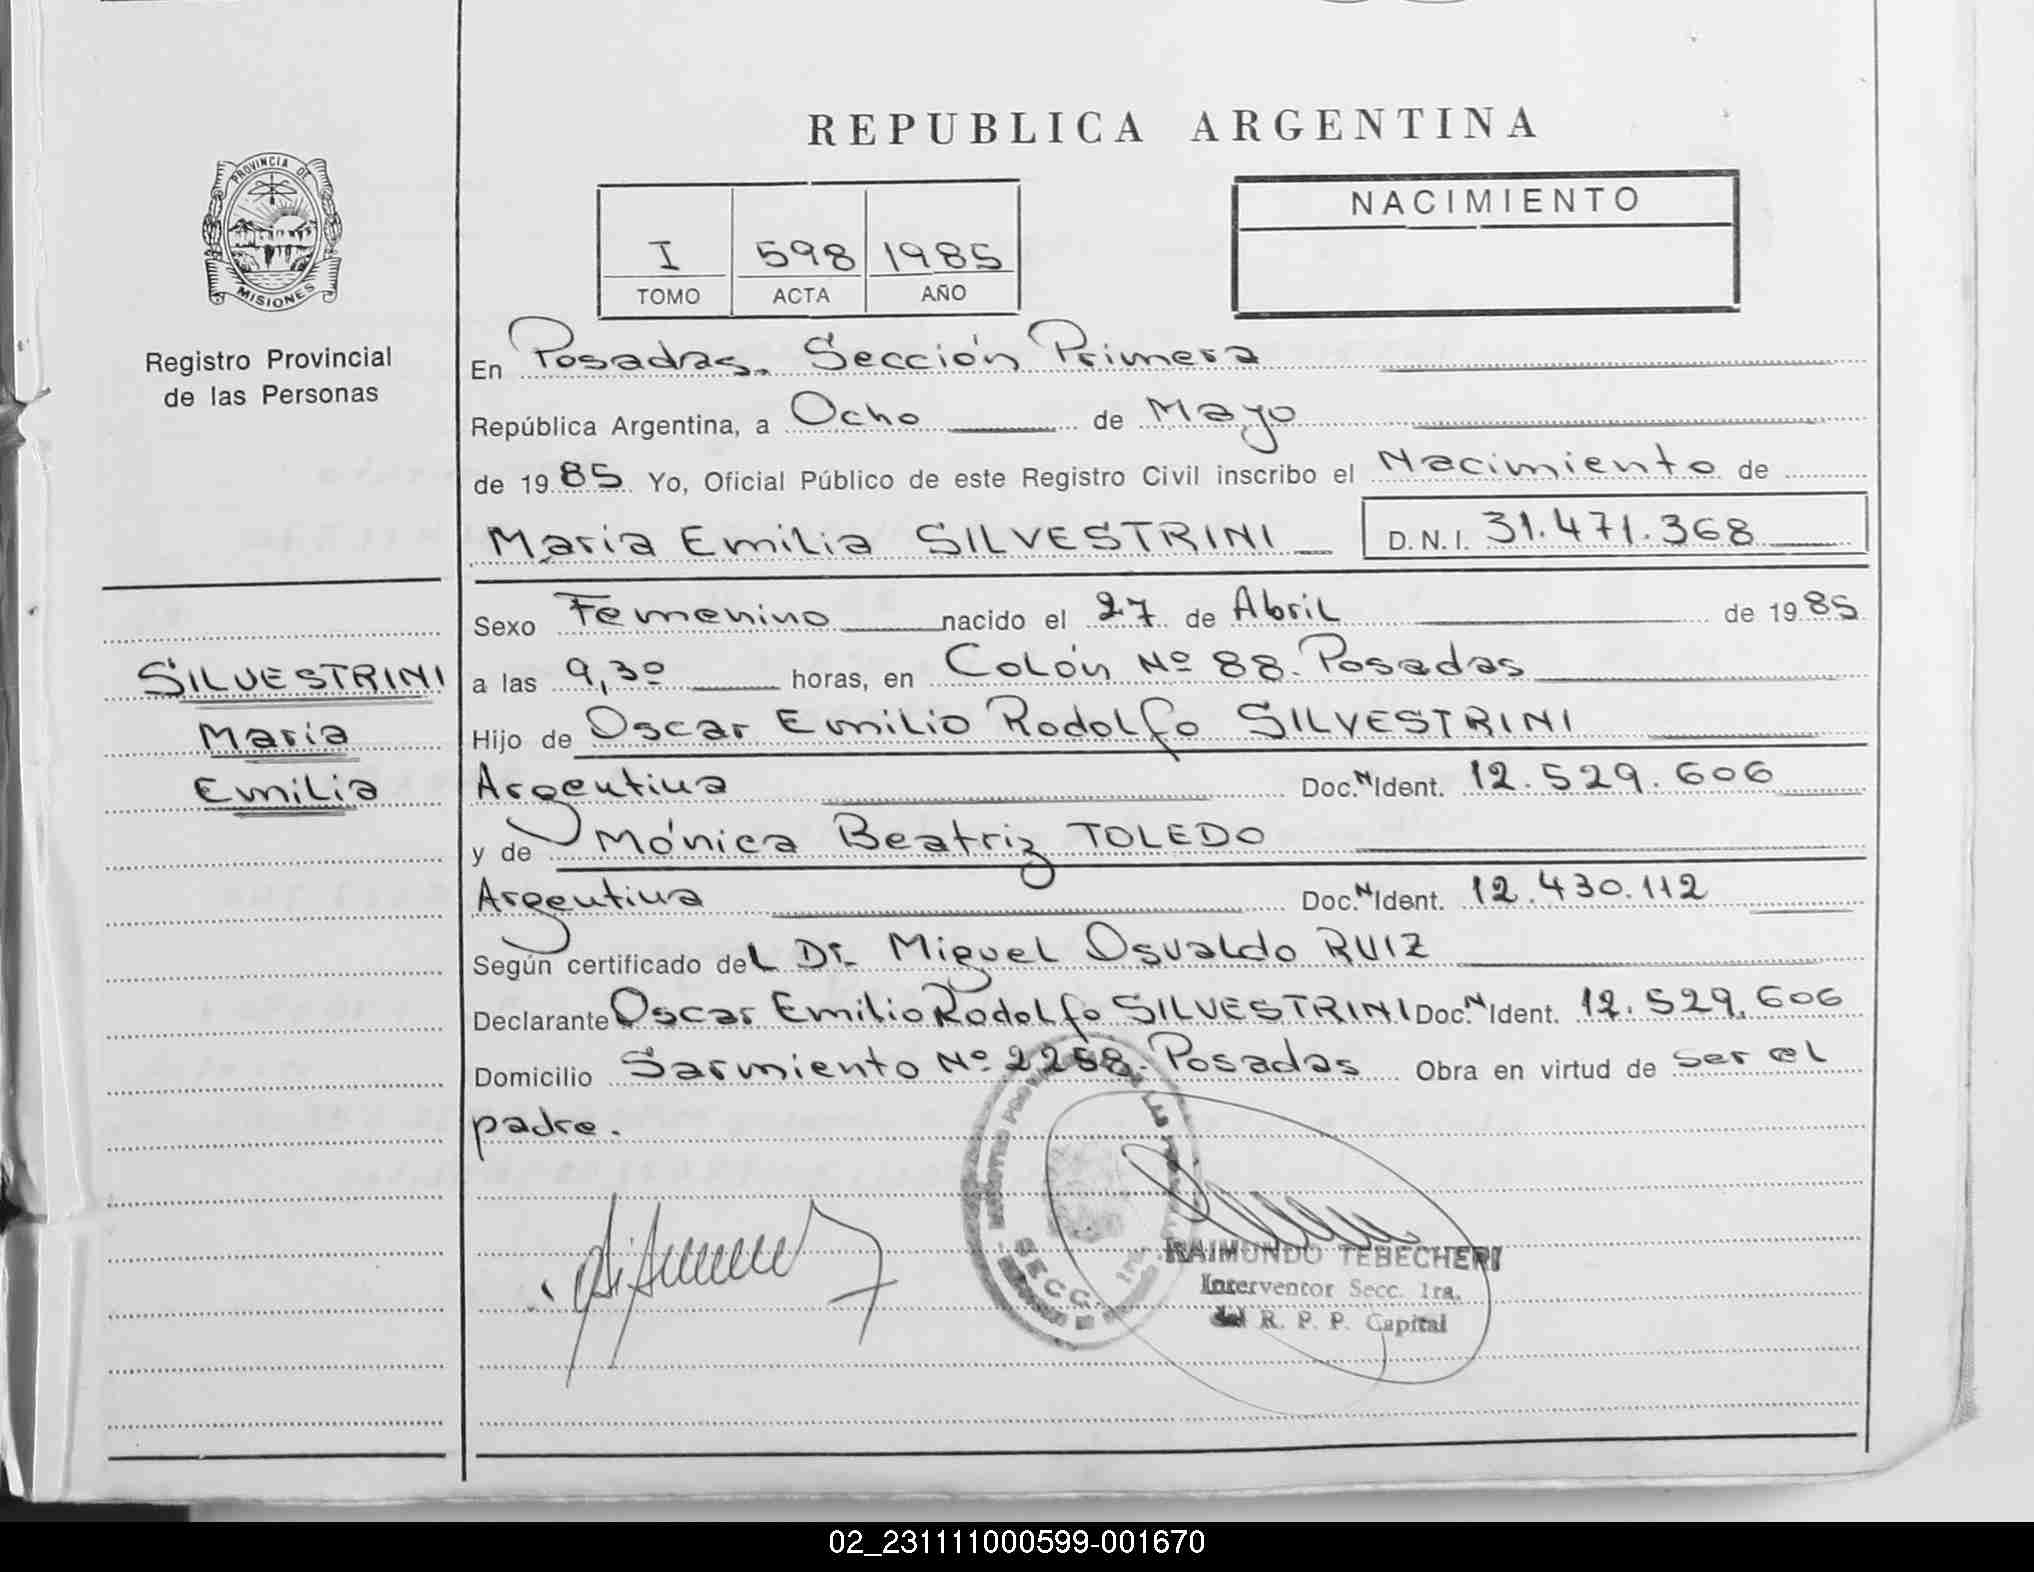 REPUBLICA ARGENTINA
PROVINCIA DE
MISIONES
Registro Provincial
de las Personas
NACIMIENTO
I 598 1985
TOMO ACTA AÑO
En Posadas. Sección Primera
República Argentina, a Ocho de Mayo
de 1985 Yo, Oficial Público de este Registro Civil inscribo el Nacimiento de
Maria Emilia SILVESTRINI D.N.I. 31.471.368
Sexo Femenino nacido el 27 de Abril de 1985
SILVESTRINI
María
Emilia
a las 9,30 horas, en Colón Nº 88. Posadas
Hijo de Oscar Emilio Rodolfo SILVESTRINI
Argentina Doc. N Ident. 12.529.606
y de Mónica Beatriz TOLEDO
Argentina Doc. N Ident. 12.430.112
Según certificado del Dr. Miguel Osvaldo RUIZ
Declarante Oscar Emilio Rodolfo SILVESTRINI Doc. N Ident. 12.529.606
Domicilio Sarmiento Nº 2258. Posadas Obra en virtud de ser el
padre.
SECC. 1ra.
RAIMUNDO TEBECHERI
Interventor Secc. 1ra.
del R. P. P. Capital
02_231111000599-001670